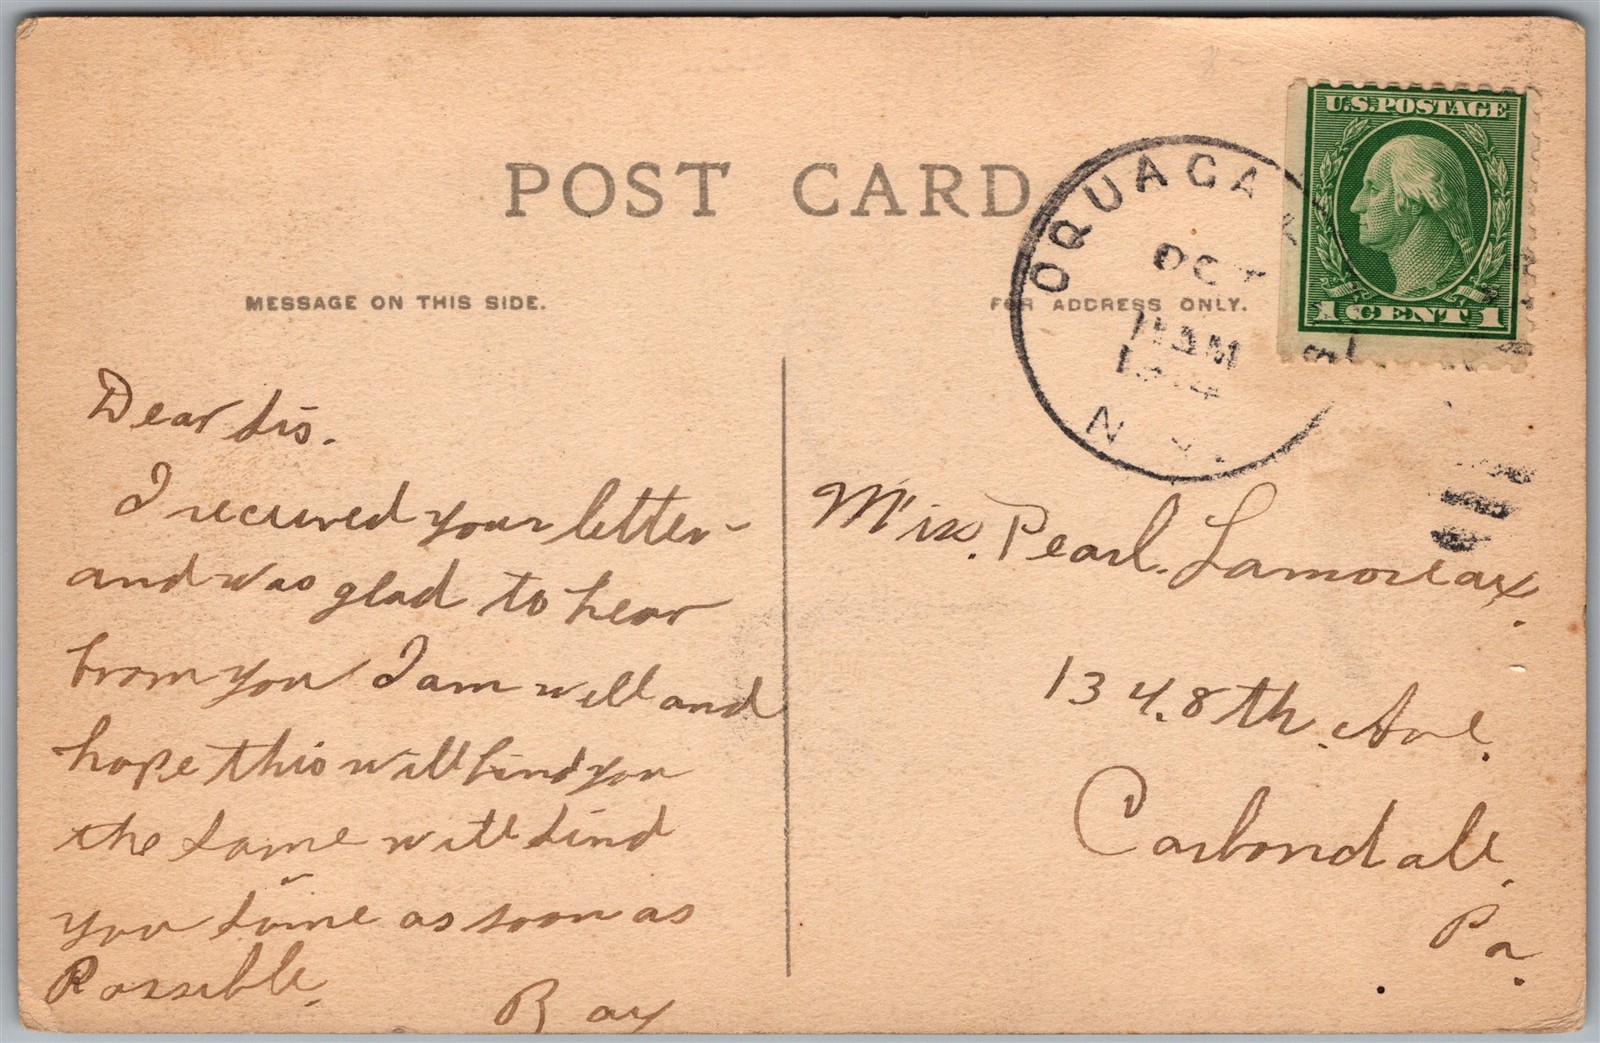 POST CARD
MESSAGE ON THIS SIDE.
FOR ADDRESS ONLY.
U.S. POSTAGE
1 CENT 1
OQUAGA
OCT
11 AM
N.Y.
Dear Sis.
I recieved your letter
and was glad to hear
from you I am well and
hope this will find you
the same will
you some as soon as
Possible.
Ray
Miss. Pearl. Lamoreaux.
134. 8th. Ave.
Carbondale.
Pa.